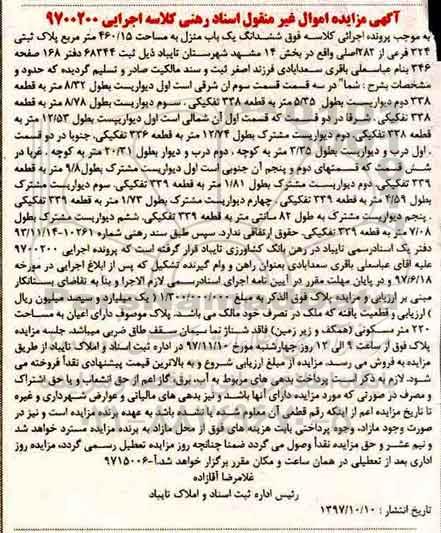 آگهی مزایده اموال غیر منقول اسناد رهنی کلاسه اجرایی ۹۷۰۰۲۰۰
به موجب پرونده اجرائی کلاسه فوق ششدانگ یک باب منزل به مساحت ۴۶۰/۱۵ متر مربع پلاک ثبتی
۳۲۴ فرعی از ۲۸۲اصلی واقع در بخش ۱۴ مشهد شهرستان تایباد ذیل ثبت ۶۸۳۴۴ دفتر ۱۶۸ صفحه
۳۴۶ بنام عباسعلی باقری سعدابادی فرزند اصغر ثبت و سند مالکیت صادر و تسلیم گردیده که حدود و
مشخصات بشرح : شما" در سه قسمت قسمت سوم ان شرقی است اول دیواریست بطول ۸/۳۲ متر به قطعه
۳۳۸ دوم دیواریست بطول ۵/۳۵ متر به قطعه ۳۳۸ تفکیکی، سوم دیواریست بطول ۸/۷۸ متر به قطعه
۳۳۸ تفکیکی، شرقا در دو قسمت که قسمت اول آن شمالی است اول دیواریست بطول ۱۲/۵۳ متر به
قطعه ۳۳۸ تفکیکی، دوم دیواریست مشترک بطول ۱۲/۷۴ متر به قطعه ۳۳۶ تفکیکی، جنوبا در دو قسمت
، اول درب و دیواریست بطول ۳/۳۵ متر به کوچه ، دوم درب و دیوار بطول ۲۰/۳۱ متر به کوچه ، غربا در
شش قسمت که قسمتهای دوم و پنجم آن جنوبی است اول دیواریست مشترک بطول۹/۸ متر به قطعه
۳۳۹ تفکیکی، دوم دیواریست مشترک بطول ۱/۸۱ متر به قطعه ۳۳۹ تفکیکی، سوم دیواریست مشترک
۲/۵۹ متر به قطعه ۳۳۹ تفکیکی، چهارم دیواریست مشترک بطول ۱/۷۳ متر به قطعه ۳۳۹ تفکیکی
، پنجم دیواریست مشترک به طول ۸۲ سانتی متر به قطعه ۳۳۹ تفکیکی، ششم دیواریست مشترک به طول
۷/۰۸ متر به قطعه ۳۳۹ تفکیکی. حقوق ارتفاقی ندارد. سپس طبق سند رهنی شماره ۱۰۲۶۱-۹۳/۱۱/۱۴
دفتر یک اسنادرسمی تایباد در رهن بانک کشاورزی تایباد قرار گرفته است که پرونده اجرایی ۹۷۰۰۲۰۰
علیه آقای عباسعلی باقری سعدابادی بعنوان راهن و وام گیرنده تشکیل که پس از ابلاغ اجرایی در مورخه
۹۷/۶/۱۸ و در پایان مهلت مقرر در آیین نامه اجرای اسنادرسمی لازم الاجرا و بنا به تقاضای بستانکار
مبنی بر ارزیابی و مزایده پلاک فوق الذکر به مبلغ ۱۱/۳۰۰/۰۰۰/۰۰۰ یک میلیارد و سیصد میلیون ریال
) ارزیابی و قطعیت یافته که ملک در تصرف خود مالک می باشد. پلاک موصوف دارای اعیان به مساحت
۲۲۰ متر مسکونی (همکف و زیر زمین) فاقد شناژ نما سیمان سقف طاق ضربی میباشد. جلسه مزایده
پلاک فوق از ساعت ۹ الی ۱۲ روز چهارشنبه مورخ ۹۷/۱۱/۱۰ در اداره ثبت اسناد و املاک تایباد از طریق
مزایده به فروش می رسد. مزایده از مبلغ ارزیابی شروع و به بالاترین قیمت پیشنهادی نقداً فروخته می
شود. لازم به ذکر است پرداخت بدهی های مربوط به آب، برق، گاز اعم از حق انشعاب و یا حق اشتراک
و مصرف در صورتی که مورد مزایده دارای آنها باشد و نیز بدهی های مالیاتی و عوارض شهرداری و غیره
تا تاریخ مزایده اعم از اینکه رقم قطعی آن معلوم شده یا نشده باشد به عهده برنده مزایده است و نیز در
صورت وجود مازاد، وجوه پرداختی بابت هزینه های فوق از محل مازاد، به برنده مزایده مسترد خواهد شد
و نیم عشر و حق مزایده نقداً وصول می گردد ضمنا چنانچه روز مزایده تعطیل رسمی گردد، مزایده روز
اداری بعد از تعطیلی در همان ساعت و مکان مقرر برگزار خواهد شد.آ-۹۷۱۵۰۰۶
غلامرضا آقازاده
رئیس اداره ثبت اسناد و املاک تایباد
تاریخ انتشار : ۱۳۹۷/۱۰/۱۰